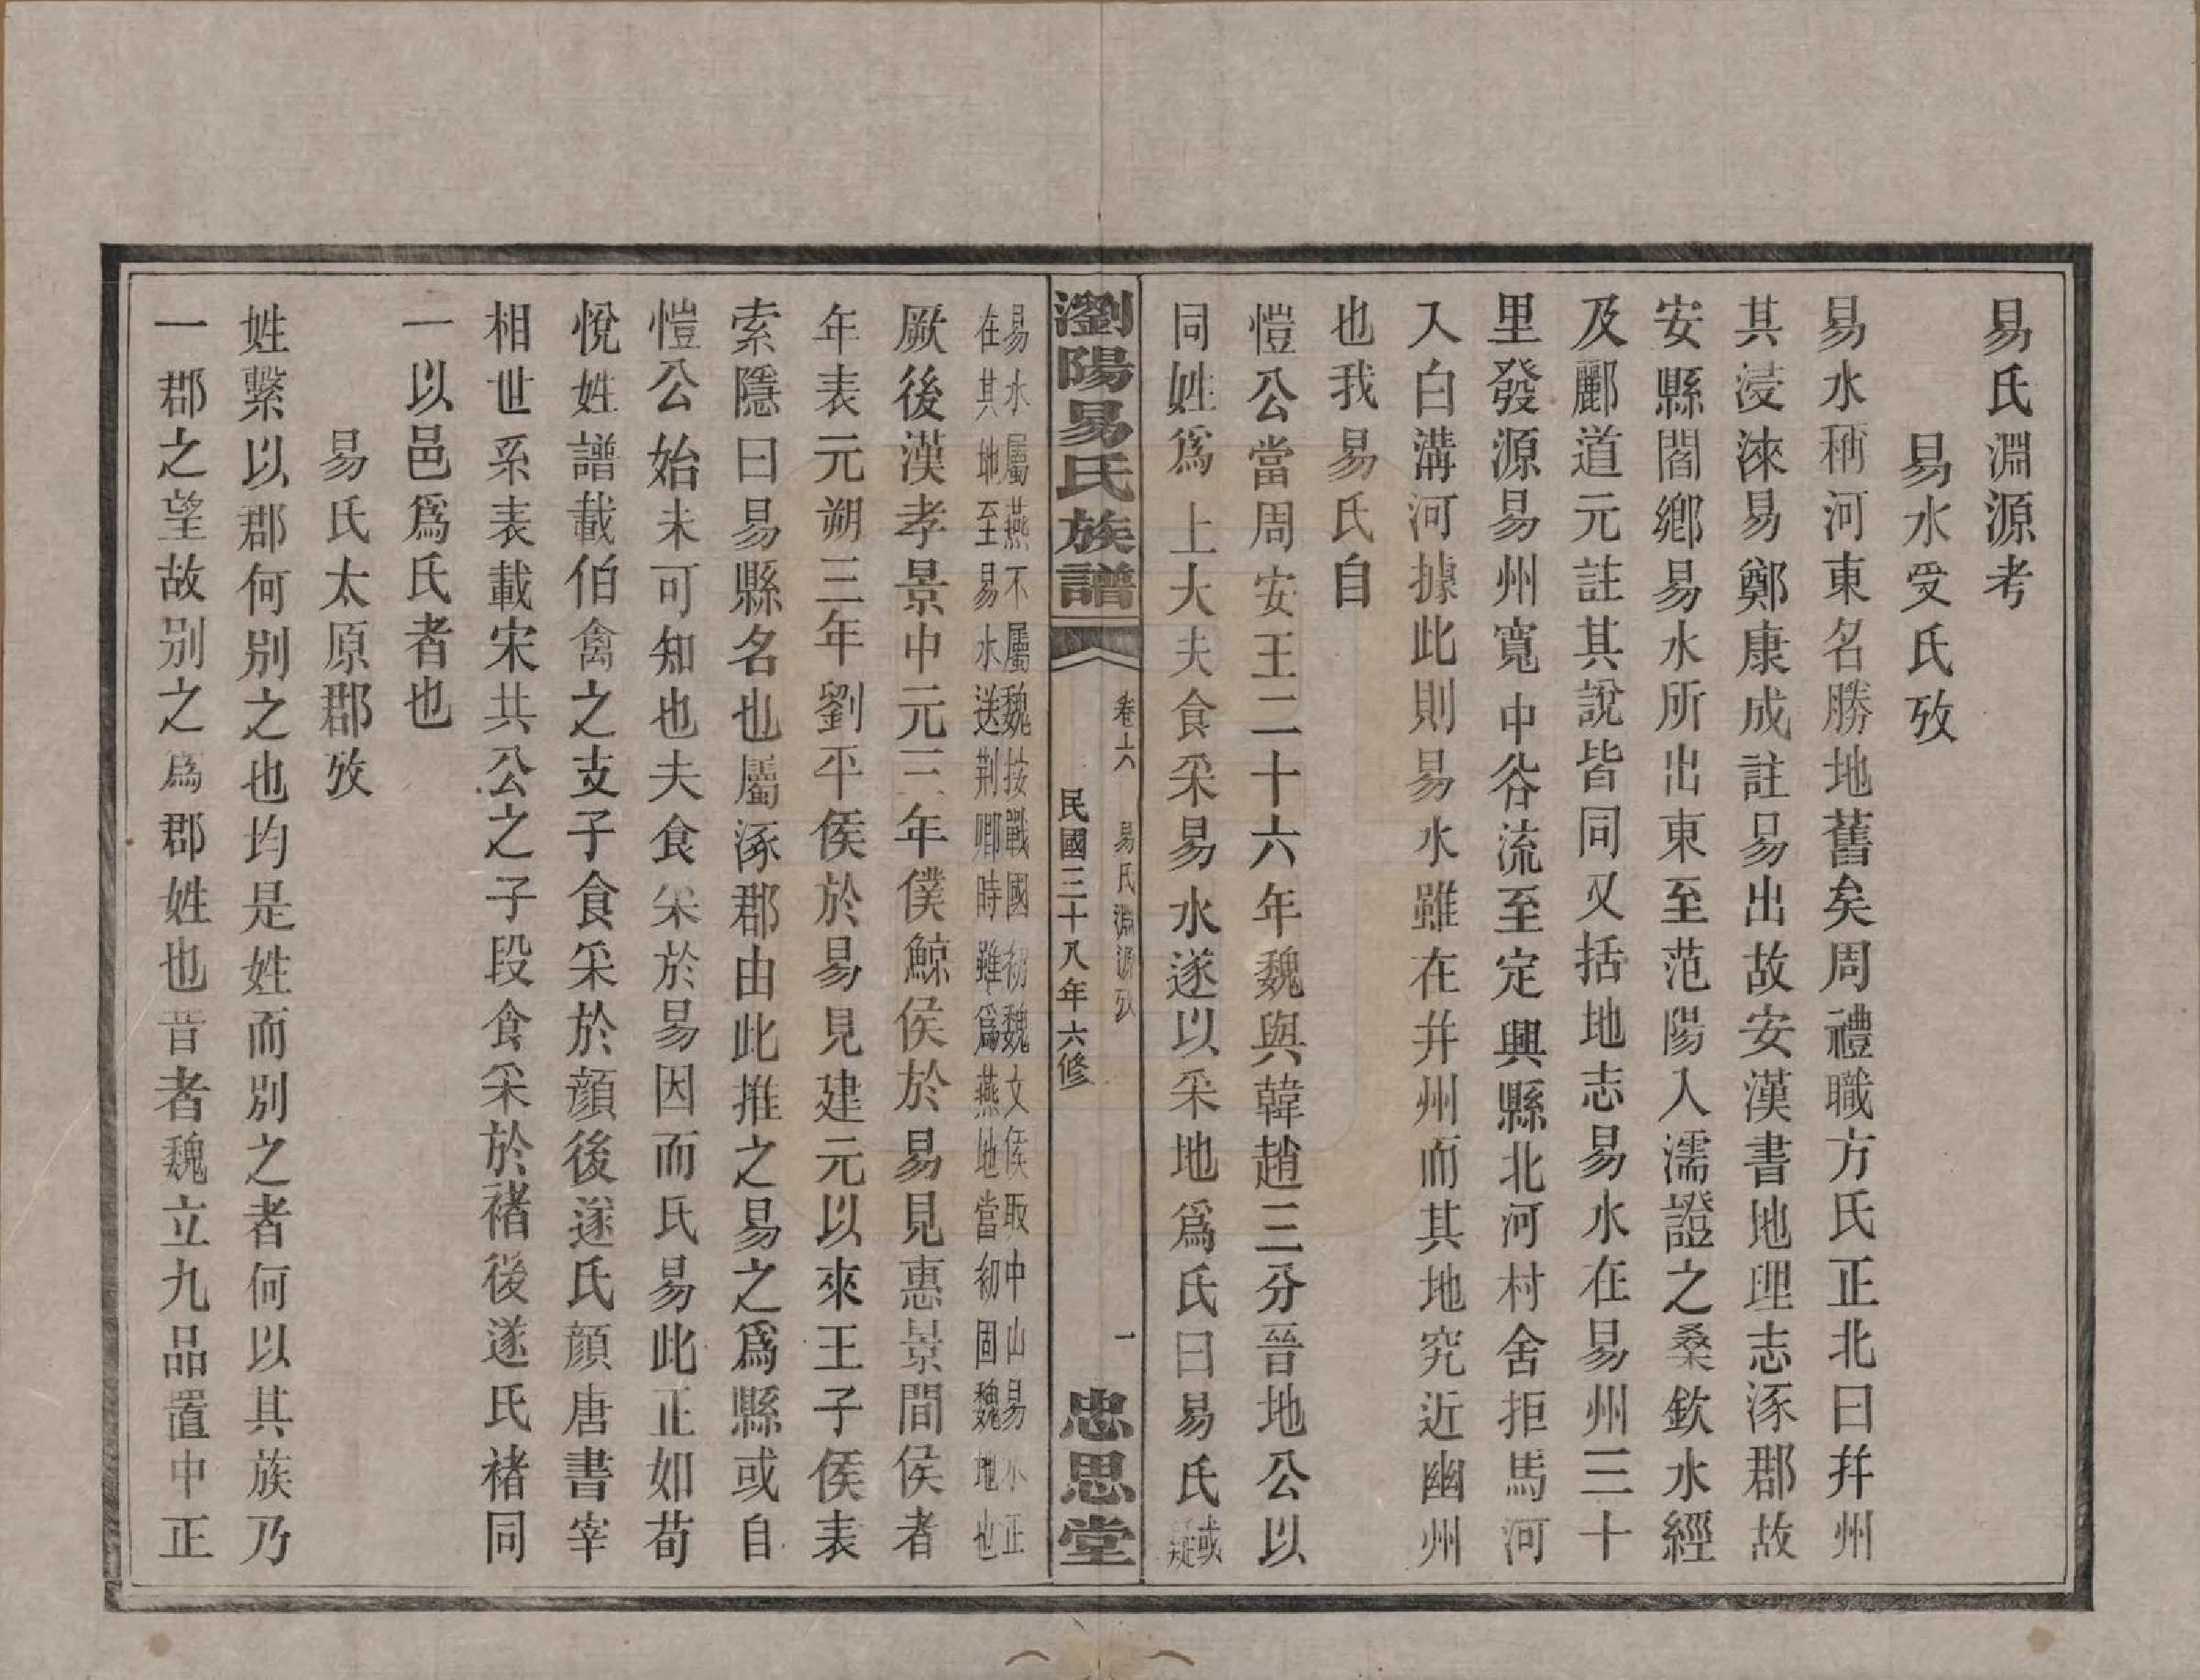 易氏淵源考
易水受氏攷
易水稱河東名勝地舊矣周禮職方氏正北曰幷州
其浸淶易鄭康成註易出故安漢書地理志涿郡故
安縣閻鄉易水所出東至范陽入濡證之桑欽水經
及酈道元註其說皆同又括地志易水在易州三十
里發源易州寬中谷流至定興縣北河村舍拒馬河
入白溝河據此則易水雖在幷州而其地究近幽州
也我易氏自
愷公當周安王二十六年魏與韓趙三分晉地公以
同姓爲上大夫食采易水遂以采地爲氏曰易氏或疑
瀏陽易氏族譜
卷六 易氏淵源攷 一
民國三十八年六修
忠思堂
易水屬燕不屬魏按戰國初魏文侯取中山易水正
在其地至易水送荆卿時雖爲燕地當初固魏地也
厥後漢孝景中元三年僕鯨侯於易見惠景間侯者
年表元朔三年劉平侯於易見建元以來王子侯表
索隱曰易縣名也屬涿郡由此推之易之爲縣或自
愷公始未可知也夫食采於易因而氏易此正如荀
悅姓譜載伯禽之支子食采於顏後遂氏顏唐書宰
相世系表載宋共公之子段食采於褚後遂氏褚同
一以邑爲氏者也
易氏太原郡攷
姓繫以郡何別之也均是姓而別之者何以其族乃
一郡之望故別之爲郡姓也昔者魏立九品置中正